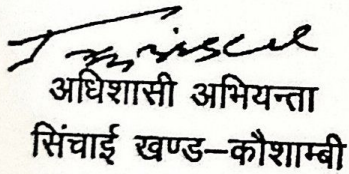 अधिशासी अभियन्ता
सिंचाई खण्ड–कौशाम्बी